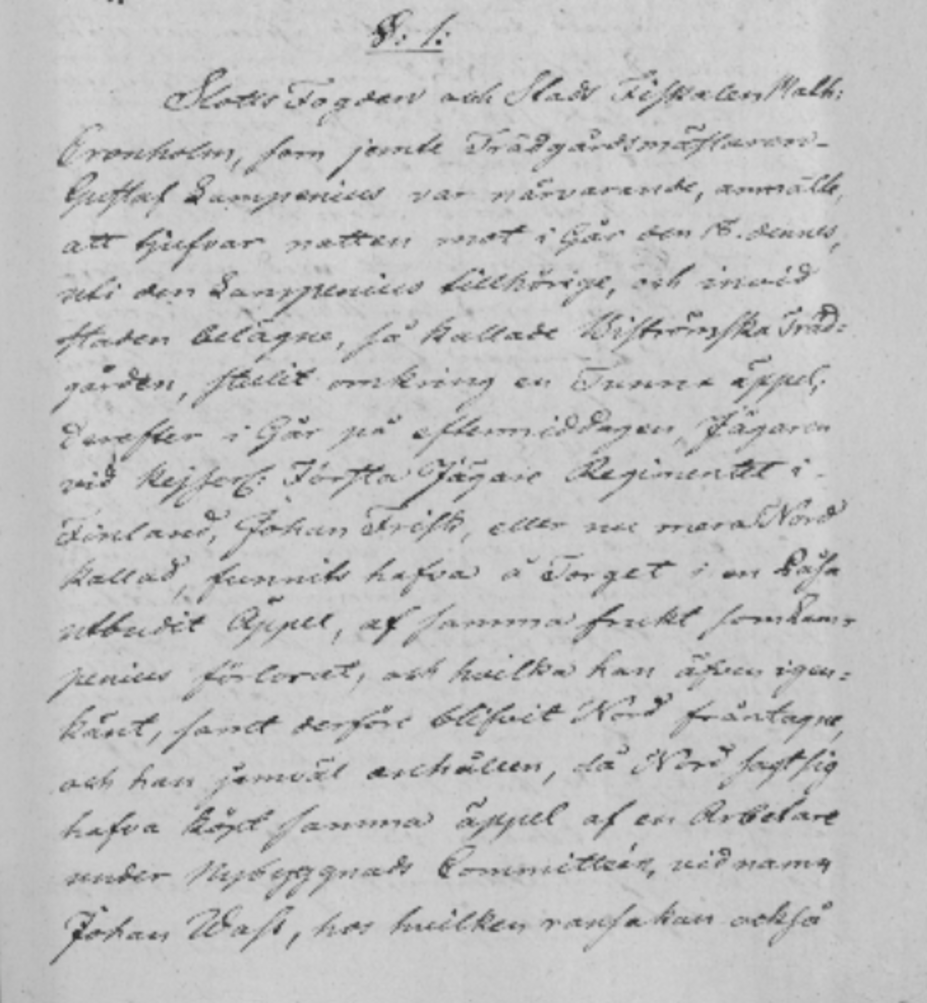 §: 1:
Slotts Fogden och Stads Fiskalen Math:
Cronholm, som jemte Trädgårdsmästaren
Gustaf Lampenius var närvarande, anmälte,
att tjufvar natten mot i Går den 18. dennes,
uti den Lampenius tillhörige, och invid
staden belägne, så kallade Biströmska Träd:
gården, stulit omkring en Tunna äppel,
derefter i Går på eftermiddagen Jägaren
vid Kejserl: Första Jägare Regimentet i
Finland, Johan Frisk, eller nu mera Nord
kallad, funnits hafva å Torget i en Påsa
utbudit Äppel, af samma frukt som Lam-
penius förlorat, och hvilka han äfven igen:
känt, samt derföre blifvit Nord fråntagne,
och han jemväl anhållen, då Nord sagt sig
hafva köpt samma äppel af en Arbetare
under Nybyggnads Committeén, vid namn
Johan Wass, hos hvilken ransakan också